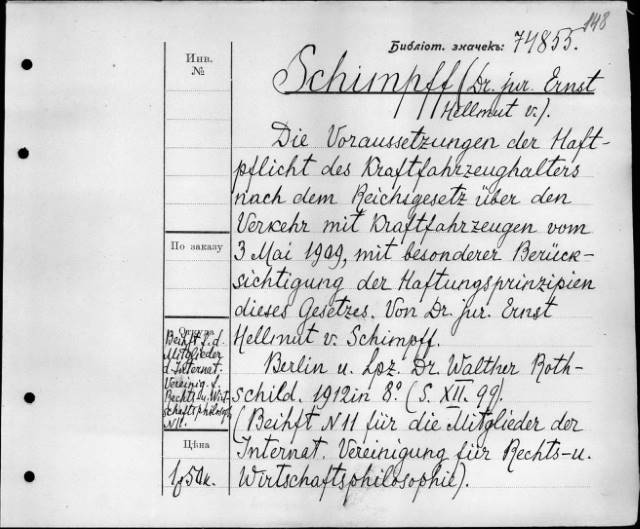 148
Библіот. значекъ: 74855.
Инв.
№
Schimpff (Dr. jur. Ernst
Hellmut v.).
Die Voraussetzungen der Haft-
pflicht des Kraftfahrzeughalters
nach dem Reichsgesetz über den
Verkehr mit Kraftfahrzeugen vom
3 Mai 1909, mit besonderer Berück-
sichtigung der Haftungsprinzipien
dieses Gesetzes. Von Dr. jur. Ernst
Hellmut v. Schimpff.
Berlin u. Lpz. Dr. Walther Roth-
schild. 1912 in 8º. (S. XII. 99).
(Beihft N 11 für die Mitglieder der
Internat. Vereinigung für Rechts- u.
Wirtschaftsphilosophie).
По заказу
Откуда
Beihft f. d.
Mitglieder
d. Internat.
Vereinig. f.
Rechts u. Wirt-
schaftsphilosoph
N 11.
Цѣна